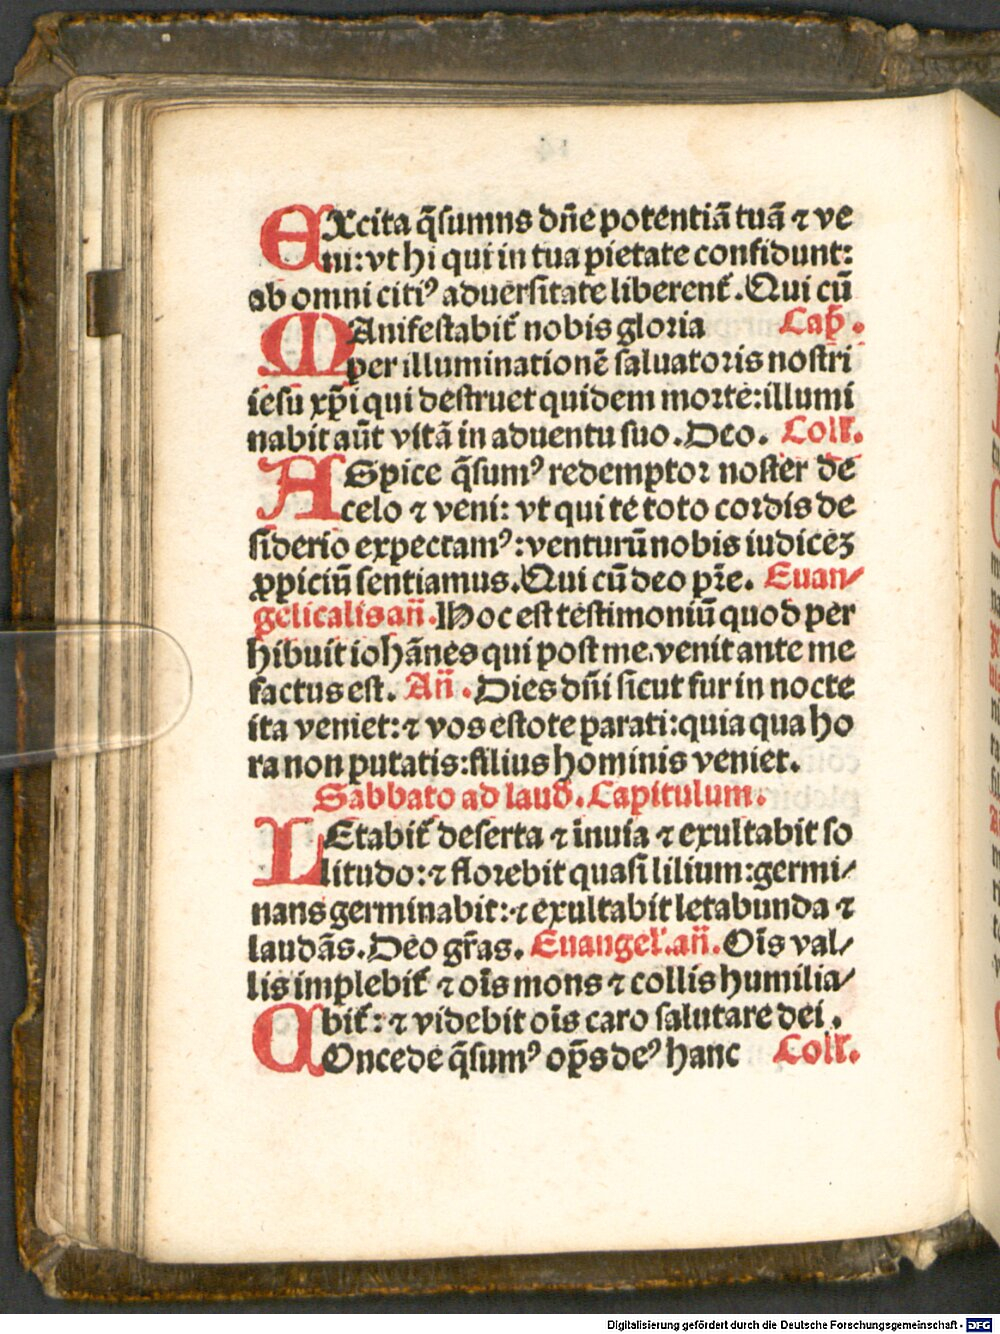 EXcita q̄sumns dn̄e potentiā tuā ⁊ ve
ni: vt hi qui in tua pietate confidunt:
ab omni citiꝰ aduersitate liberent᷑. Qui cū
MAnifestabit᷑ nobis gloria Cap̄.
per illuminationē saluatoris nostri
iesu xp̄i qui destruet quidem mortē: illumi
nabit aūt vitā in aduentu suo. Deo. Coll̄.
ASpice q̄sumꝰ redemptor noster de
celo ⁊ veni: vt qui te toto cordis de
siderio expectamꝰ: venturū nobis iudicēꝫ
ꝓpiciū sentiamus. Qui cū deo pr̄e. Euan-
gelicalis an̄. Hoc est testimoniū quod per
hibuit iohānes qui post me venit ante me
factus est. An̄. Dies dn̄i sicut fur in nocte
ita veniet: ⁊ vos estote parati: quia qua ho
ra non putatis: filius hominis veniet.
Sabbato ad laud̄. Capitulum.
LEtabit᷑ deserta ⁊ inuia ⁊ exultabit so
litudo: ⁊ florebit quasi lilium: germi-
nans germinabit: ⁊ exultabit letabunda ⁊
laudās. Deo gr̄as. Euangel̄. an̄. Oīs val-
lis implebit᷑ ⁊ oīs mons ⁊ collis humilia-
bit᷑: ⁊ videbit oīs caro salutare dei.
COncede q̄sumꝰ op̄s deꝰ hanc Coll̄.
Digitalisierung gefördert durch die Deutsche Forschungsgemeinschaft - DFG